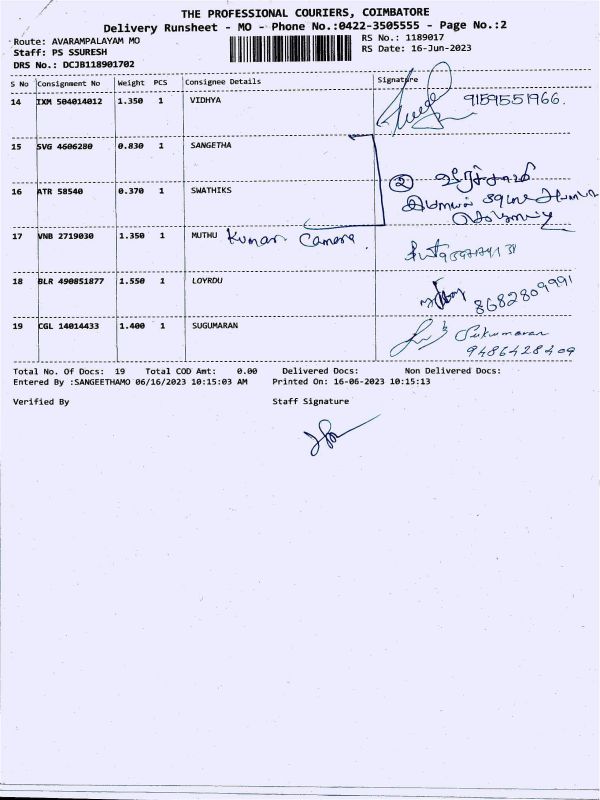 THE PROFESSIONAL COURIERS, COIMBATORE
Delivery Runsheet - MO - Phone No.:0422-3505555 - Page No.:2
Route: AVARAMPALAYAM MO
RS No.: 1189017
Staff: PS SSURESH
RS Date: 16-Jun-2023
DRS No.: DCJB118901702
S No Consignment No Weight PCS Consignee Details Signature
14 IXM 504014012 1.350 1 VIDHYA 9159551966.
15 SVG 4606280 0.830 1 SANGETHA
16 ATR 58540 0.370 1 SWATHIKS ②
17 VNB 2719030 1.350 1 MUTHU Kumar Camera
18 BLR 490851877 1.550 1 LOYRDU 8682809991
19 CGL 14014433 1.400 1 SUGUMARAN Sukumaran
9486428409
Total No. Of Docs: 19 Total COD Amt: 0.00 Delivered Docs: Non Delivered Docs:
Entered By :SANGEETHAMO 06/16/2023 10:15:03 AM Printed On: 16-06-2023 10:15:13
Verified By Staff Signature